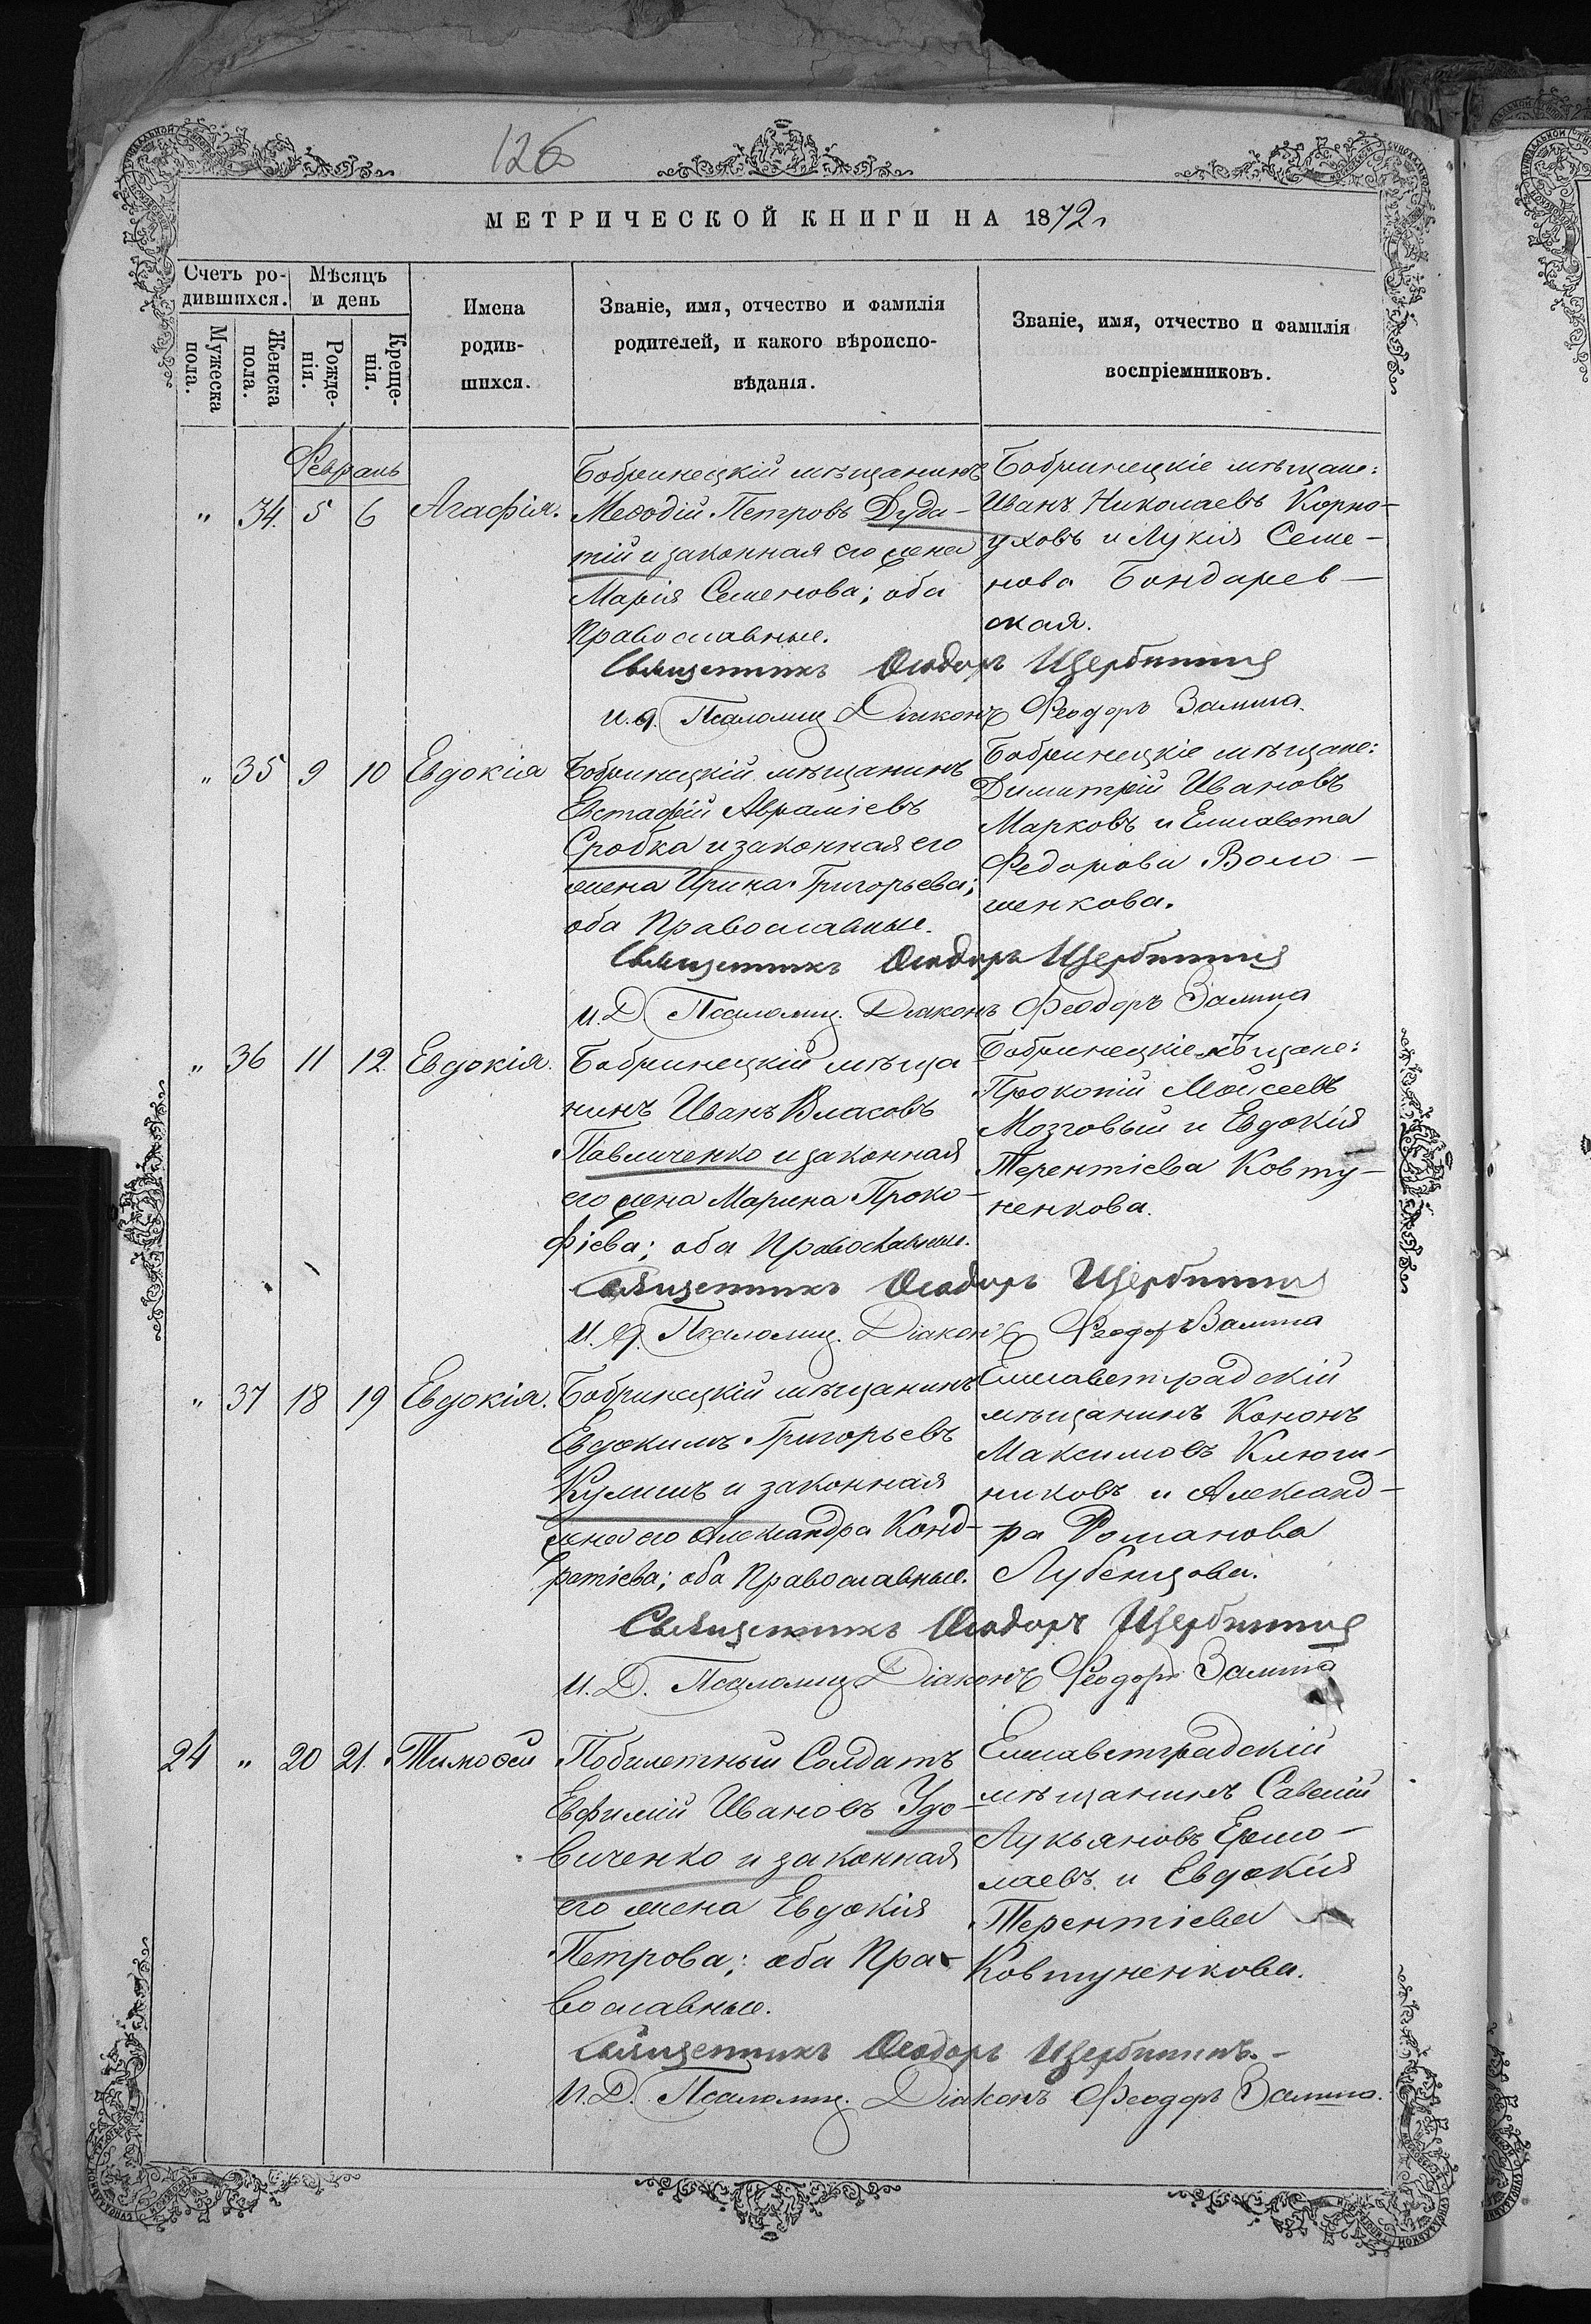 126
МЕТРИЧЕСКОЙ КНИГИ НА 1872 г
Счетъ ро-
дившихся.
Мѣсяцъ
и день
Мужеска
пола.
Женска
пола.
Рожде-
нія.
Креще-
нія.
Имена
родив-
шихся.
Званіе, имя, отчество и фамилія
родителей, и какого вѣроиспо-
вѣданія.
Званіе, имя, отчество и фамилія
воспріемниковъ.
Февраль
" 34. 5 6 Агафія.
Бобринецкій мѣщанинъ
Меѳодій Петровъ Дуда-
тій и законная его жена
Марія Семенова; оба
Православные.
Бобринецкіе мѣщане:
Иванъ Николаевъ Корно-
уховъ и Лукія Семе-
нова Бондарев-
ская.
Священникъ Ѳеодоръ
И.д. Псаломщ. Діаконъ Феодоръ
" 35 9 10 Евдокія
Бобринецкій мѣщанинъ
Евстафій Авраміевъ
Сробка и законная его
жена Ирина Григорьева;
оба Православные.
Бобринецкіе мѣщане:
Димитрій Ивановъ
Марковъ и Елисавета
Федорова Воло-
шенкова.
Священникъ Ѳеодоръ
И.Д. Псаломщ. Діаконъ Феодоръ
" 36 11 12. Евдокія.
Бобринецкій мѣща
нинъ Иванъ Власовъ
Павличенко и законная
его жена Марина Проко-
фіева; оба Православные.
Бобринецкіе мѣщане:
Прокопій Моисеевъ
Мозговый и Евдокія
Терентіева Ковту-
ненкова.
Священникъ Ѳеодоръ
И.д. Псаломщ. Діаконъ Феодоръ
" 37 18 19 Евдокія.
Бобринецкій мѣщанинъ
Евдокимъ Григорьевъ
Кулишъ и законная
жена его Александра Конд-
ратіева; оба Православные.
Елисаветградскій
мѣщанинъ Кононъ
Максимовъ Ключ-
никовъ и Александ-
ра Романова
Лубенцова.
Священникъ Ѳеодоръ
И.Д. Псаломщ. Діаконъ Феодоръ
24 " 20 21. Тимоѳей
Побилетный Солдатъ
Евфимій Ивановъ Удо-
виченко и законная
его жена Евдокія
Петрова; оба Пра-
вославные.
Елисаветградскій
мѣщанинъ Савелій
Лукьяновъ Ермо-
лаевъ и Евдокія
Терентіева
Ковтуненкова.
Священникъ Ѳеодоръ
И.Д. Псаломщ. Діаконъ Феодоръ